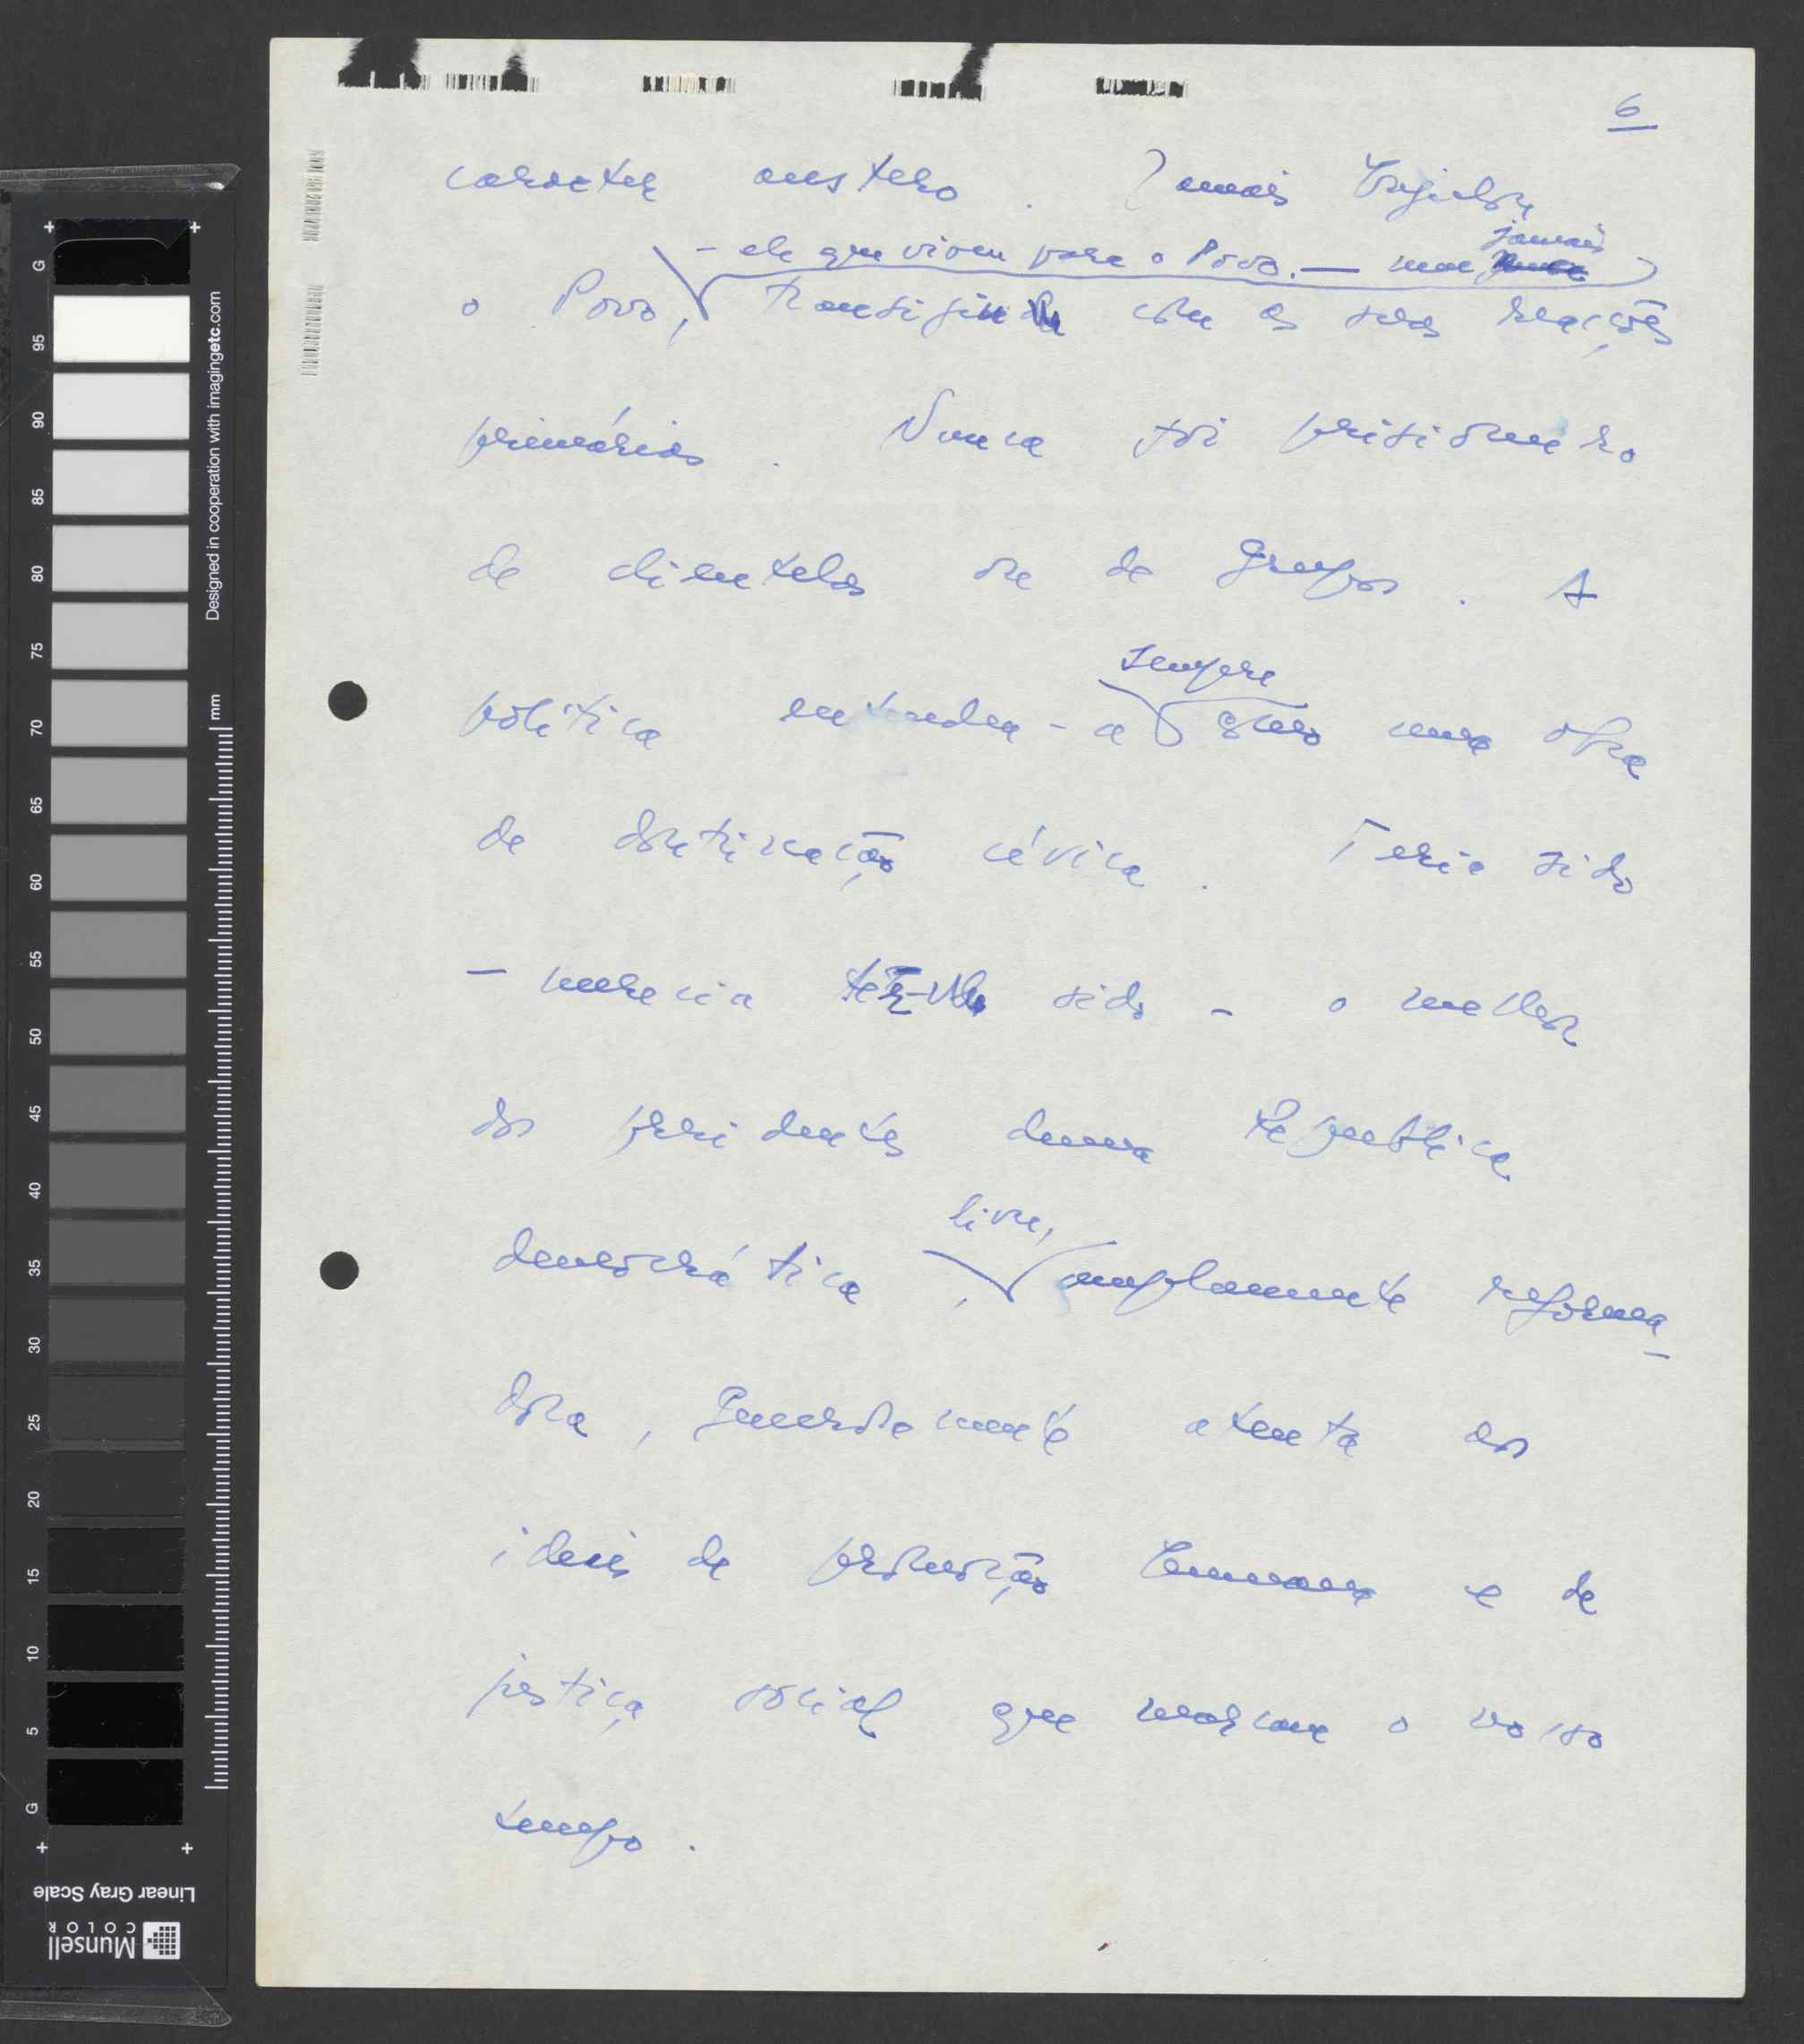 6
carácter austero. Jamais bajulou
- ele que viveu para o Povo. — nem jamais
o Povo, transigiu com as suas reacções
primárias. Nunca foi prisioneiro
de clientelas ou de grupos. A
sempre
política entendeu-a como uma obra
de doutrinação cívica. Teria sido
- merecia ter sido - o melhor
dos presidentes duma República
livre,
democrática, amplamente reforma-
dora, generosamente atenta aos
ideais de promoção humana e de
justiça social que marcam o nosso
tempo.
G
95
90
85
80
75
70
65
60
55
50
45
40
35
30
25
20
15
10
5
G
mm
Designed in cooperation with imagingetc.com
Linear Gray Scale
Munsell
COLOR